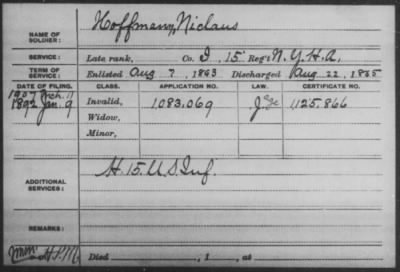 NAME OF SOLDIER: Hoffmann, Niclaus
SERVICE: Late rank, Co. I, 15 Reg't N.Y.H.A.
TERM OF SERVICE: Enlisted Aug ?, 1863 Discharged Aug. 22, 1865
DATE OF FILING. CLASS. APPLICATION NO. LAW. CERTIFICATE NO.
1907 Mch. 11
1892 Jan. 9 Invalid, 1,083,069 1,125,866
Widow,
Minor,
ADDITIONAL SERVICES: H. 15. U.S. Inf.
REMARKS:
Died , 1 , at